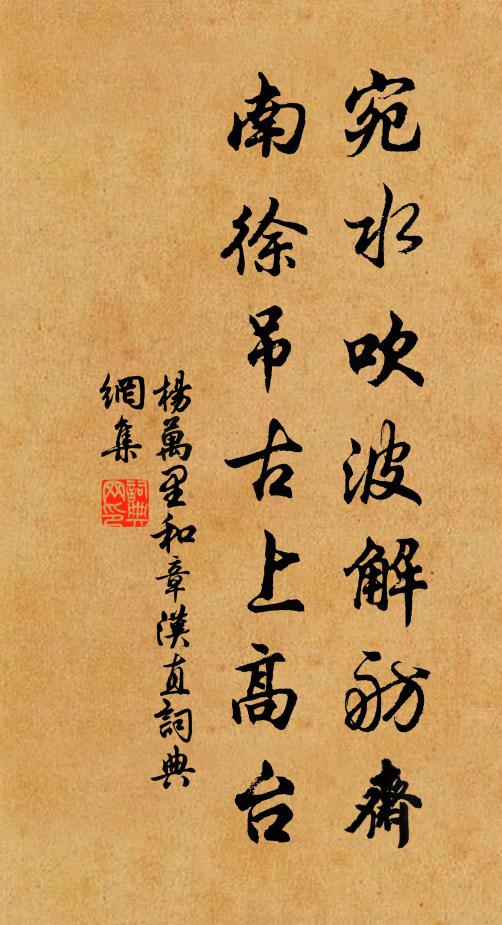 宛水吹波解舫齋
南徐吊古上高台
楊萬里和章漢直詞典
網集
詞典網印